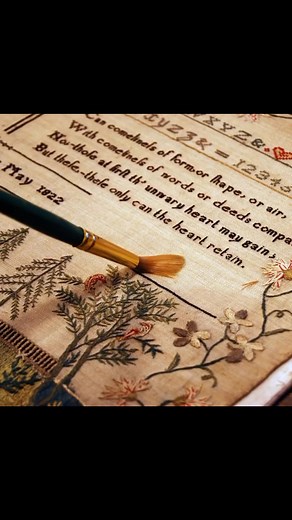 XYZ&
XYZ& = 12345
Can comelineſs of form or ſhape, or air,
With comelineſs of words or deeds compa
No: thoſe at firſt th' unwary heart may gain;
But theſe, theſe only can the heart retain.
May 1822